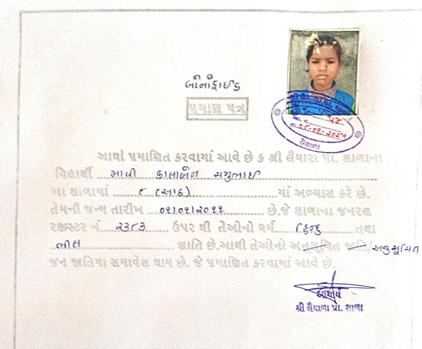 બોનાફાઈડ
પ્રમાણ પત્ર
આથી પ્રમાણિત કરવામાં આવે છે કે શ્રી લૈયારા પ્રા. શાળાના
વિદ્યાર્થી માવી કાળીબેન
આ શાળામાં ૮ (આઠ) માં અભ્યાસ કરે છે.
તેમની જન્મ તારીખ ૦૨।૦૨।૨૦૧૧ છે.જે શાળાના જનરલ
રજીસ્ટર નં ૨૩૮૩ ઉપર થી તેઓનો ધર્મ હિન્દુ તથા
ભીલ જ્ઞાતિ છે.આથી તેઓનો અનુસૂચિત જાતિ અનુસૂચિત
જન જાતિમા સમાવેશ થાય છે. જે પ્રમાણિત કરવામાં આવે છે.
આચાર્ય
શ્રી લૈયાળા પ્રા. શાળા